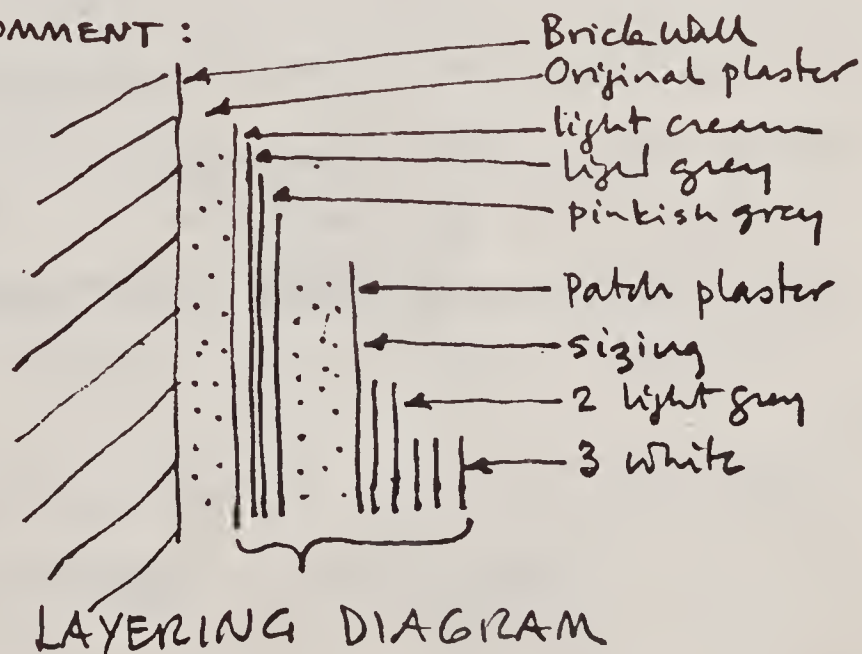 OMMENT :
Brick Wall
Original plaster
light cream
light grey
pinkish grey
Patch plaster
sizing
2 light grey
3 white
LAYERING DIAGRAM